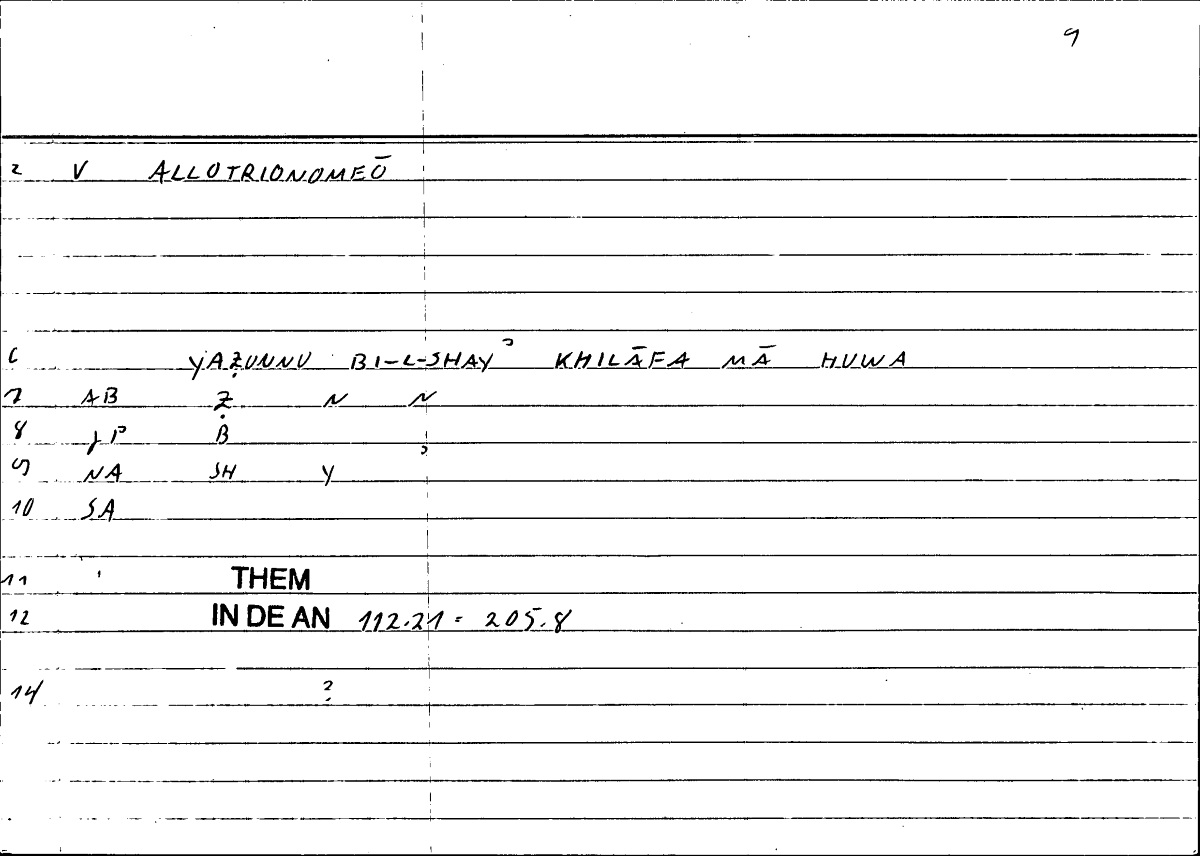 9
2 V ALLOTRIONOMEŌ
6 YAẒUNNU BI-L-SHAYʾ KHILĀFA MĀ HUWA
7 AB Ẓ N N
8 JP B
9 NA SH Y ʾ
10 SA
11 THEM
12 IN DE AN 112.21 = 205.8
14 ?